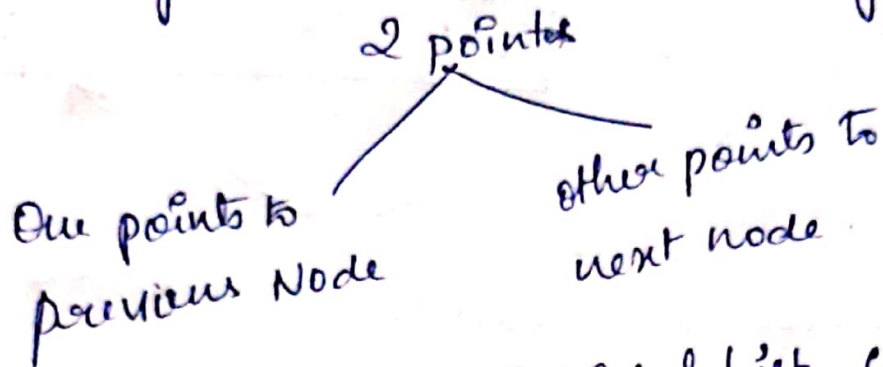 2 pointers
One points to
previous Node
other points to
next node